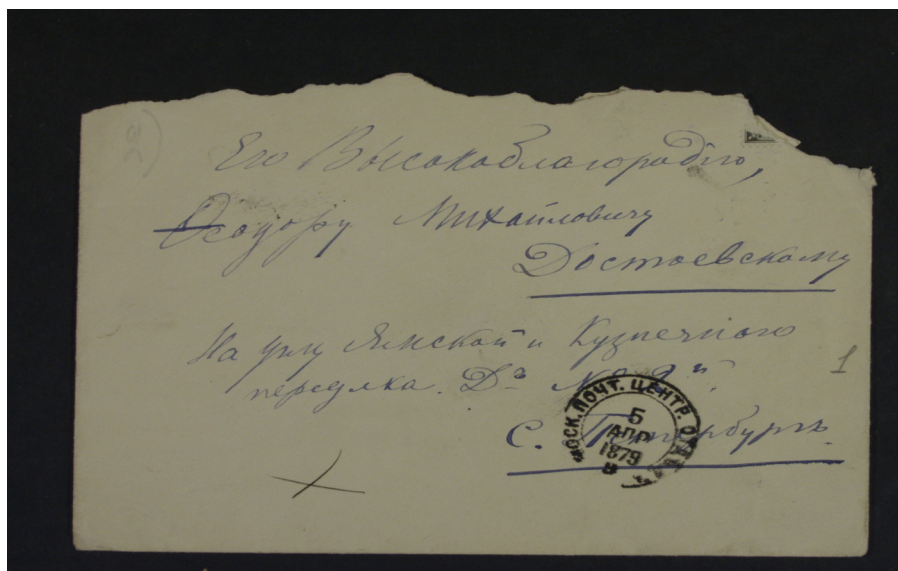 Его Высокоблагородію,
Ѳеодору Михайловичу
Достоевскому
На углу Ямской и Кузнечнаго
переулка. Дъ № 2й.
С. Петербургъ.
МОСК. ПОЧТ. ЦЕНТР.
5
АПР
1879
1